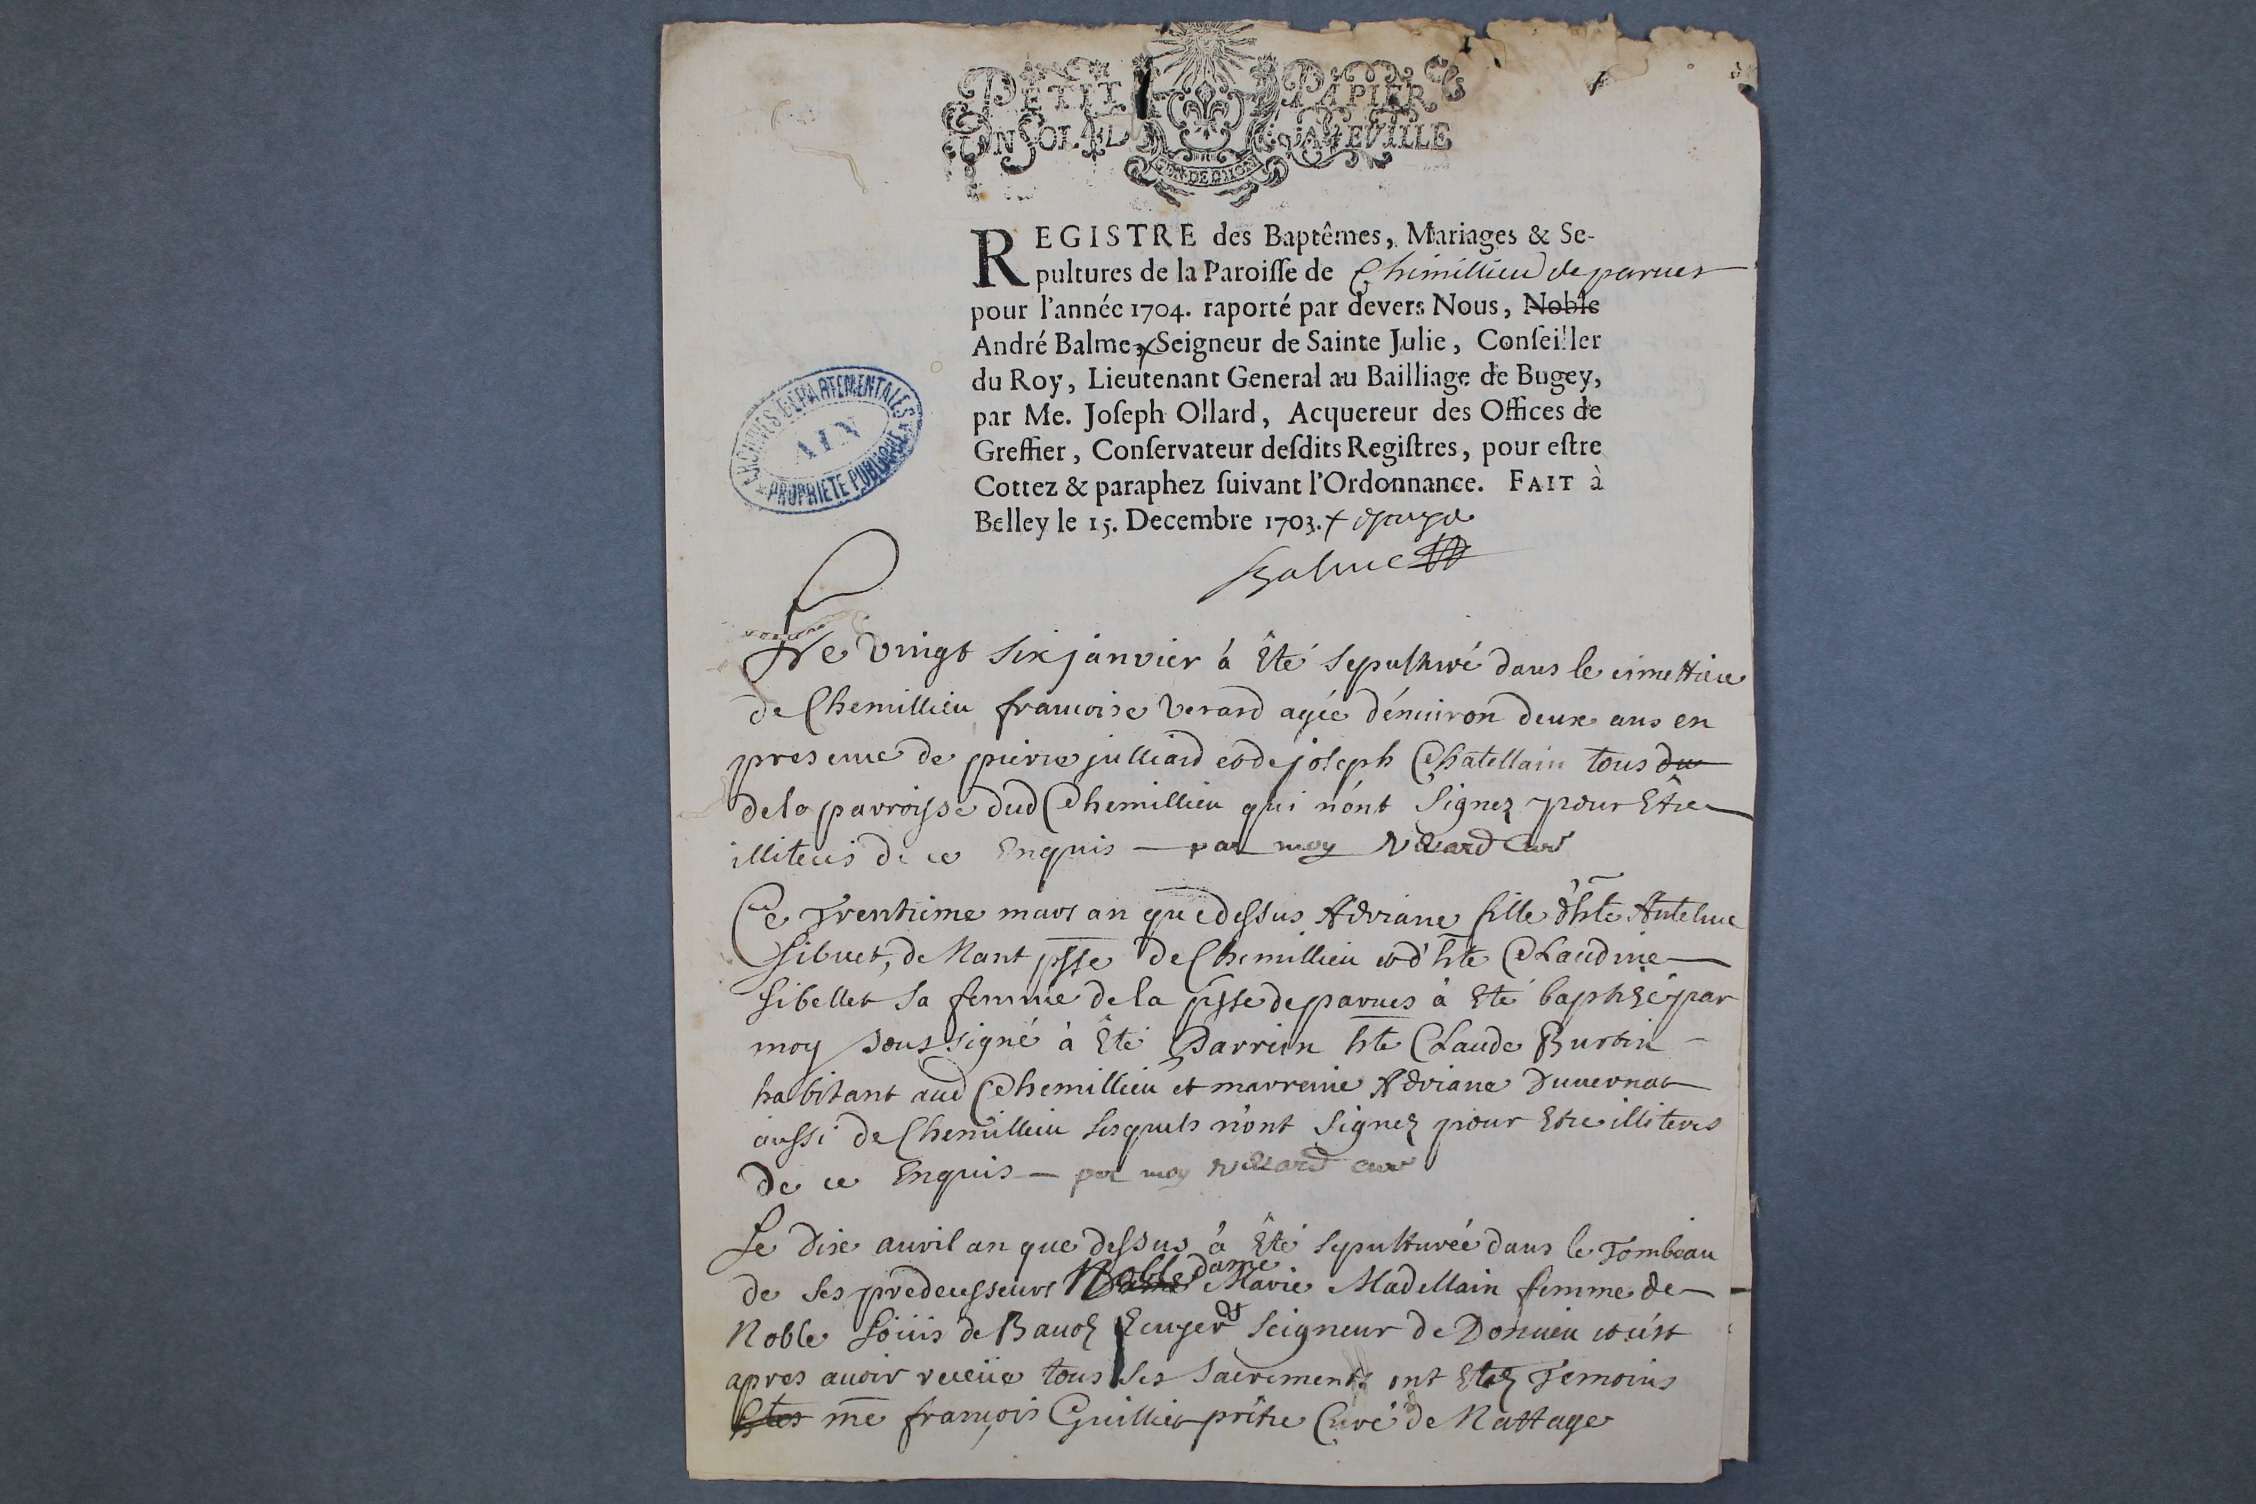 PETIT PAPIER
UN SOL LA FEUILLE
GEN. DE DIJON
REGISTRE des Baptêmes, Mariages & Se-
pultures de la Paroisse de Chimillieu de parues
pour l'année 1704. raporté par devers Nous, Noble
André Balme, × Seigneur de Sainte Julie, Conseiller
du Roy, Lieutenant General au Bailliage de Bugey,
par Me. Joseph Ollard, Acquereur des Offices de
Greffier, Conservateur desdits Registres, pour estre
Cottez & paraphez suivant l'Ordonnance. FAIT à
Belley le 15. Decembre 1703. ×
Balme
ARCHIVES DEPARTEMENTALES
AIN
PROPRIETE PUBLIQUE
Le vingt six janvier à êté sepulturé dans le cimettiere
de Chemillieu francoise Verard agée d'énuiron deux ans en
presence de pierre julliard et de joseph Chatellain tous du
de la parroisse dud Chemillieu qui n'ont signez pour Etre
illiteris de ce Enquis — par moy Curé
Ce Trentieme mars an que dessus Adriane fille d'hte Antelme
Sibuet, de Nant psse de Chemillieu et d'hte Claudine
Sibellet sa femme de la psse de parues à Eté baptizé par
moy soussigné à Eté Parrein hte Claude Burtin
habitant aud Chemillieu et marreine Adriane Duuernat
aussi de Chemillieu lesquels n'ont signez pour Etre illiteres
De ce Enquis — par moy Curé
Le Dix auril an que dessus à Êté sepulturée dans le Tombeau
de ses predecesseurs Noble Dame Marie Madellain femme de
Noble Loüis de Bauoz Ecuyer Seigneur de Donuieu et c'est
apres auoir receüe tous ses sacrements ont Etez Temoins
Etes me françois Guilliet prêtre Curé de Nattage